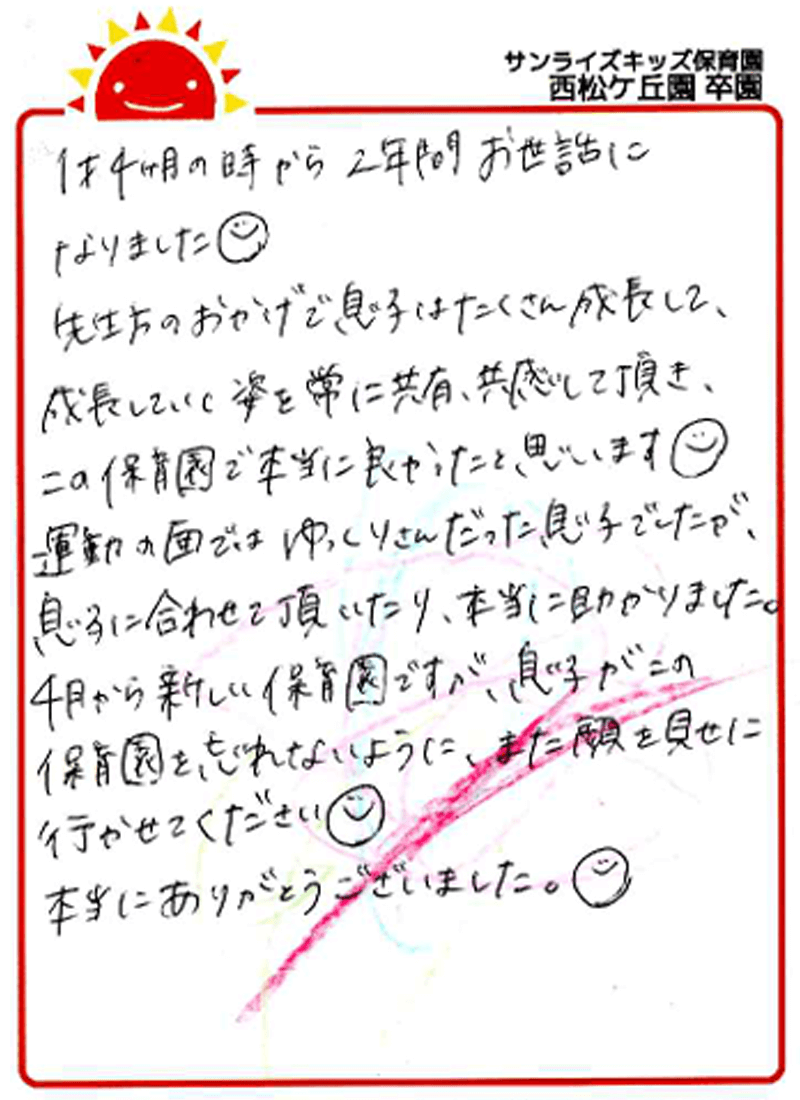 サンライズキッズ保育園
西松ケ丘園 卒園
1才4ヶ月の時から2年間お世話に
なりました
先生方のおかげで息子はたくさん成長して、
成長していく姿を常に共有、共感して頂き、
この保育園で本当に良かったと思います
運動の面ではゆっくりさんだった息子でしたが、
息子に合わせて頂いたり、本当に助かりました。
4月から新しい保育園ですが、息子がこの
保育園を忘れないように、また顔を見せに
行かせてください
本当にありがとうございました。